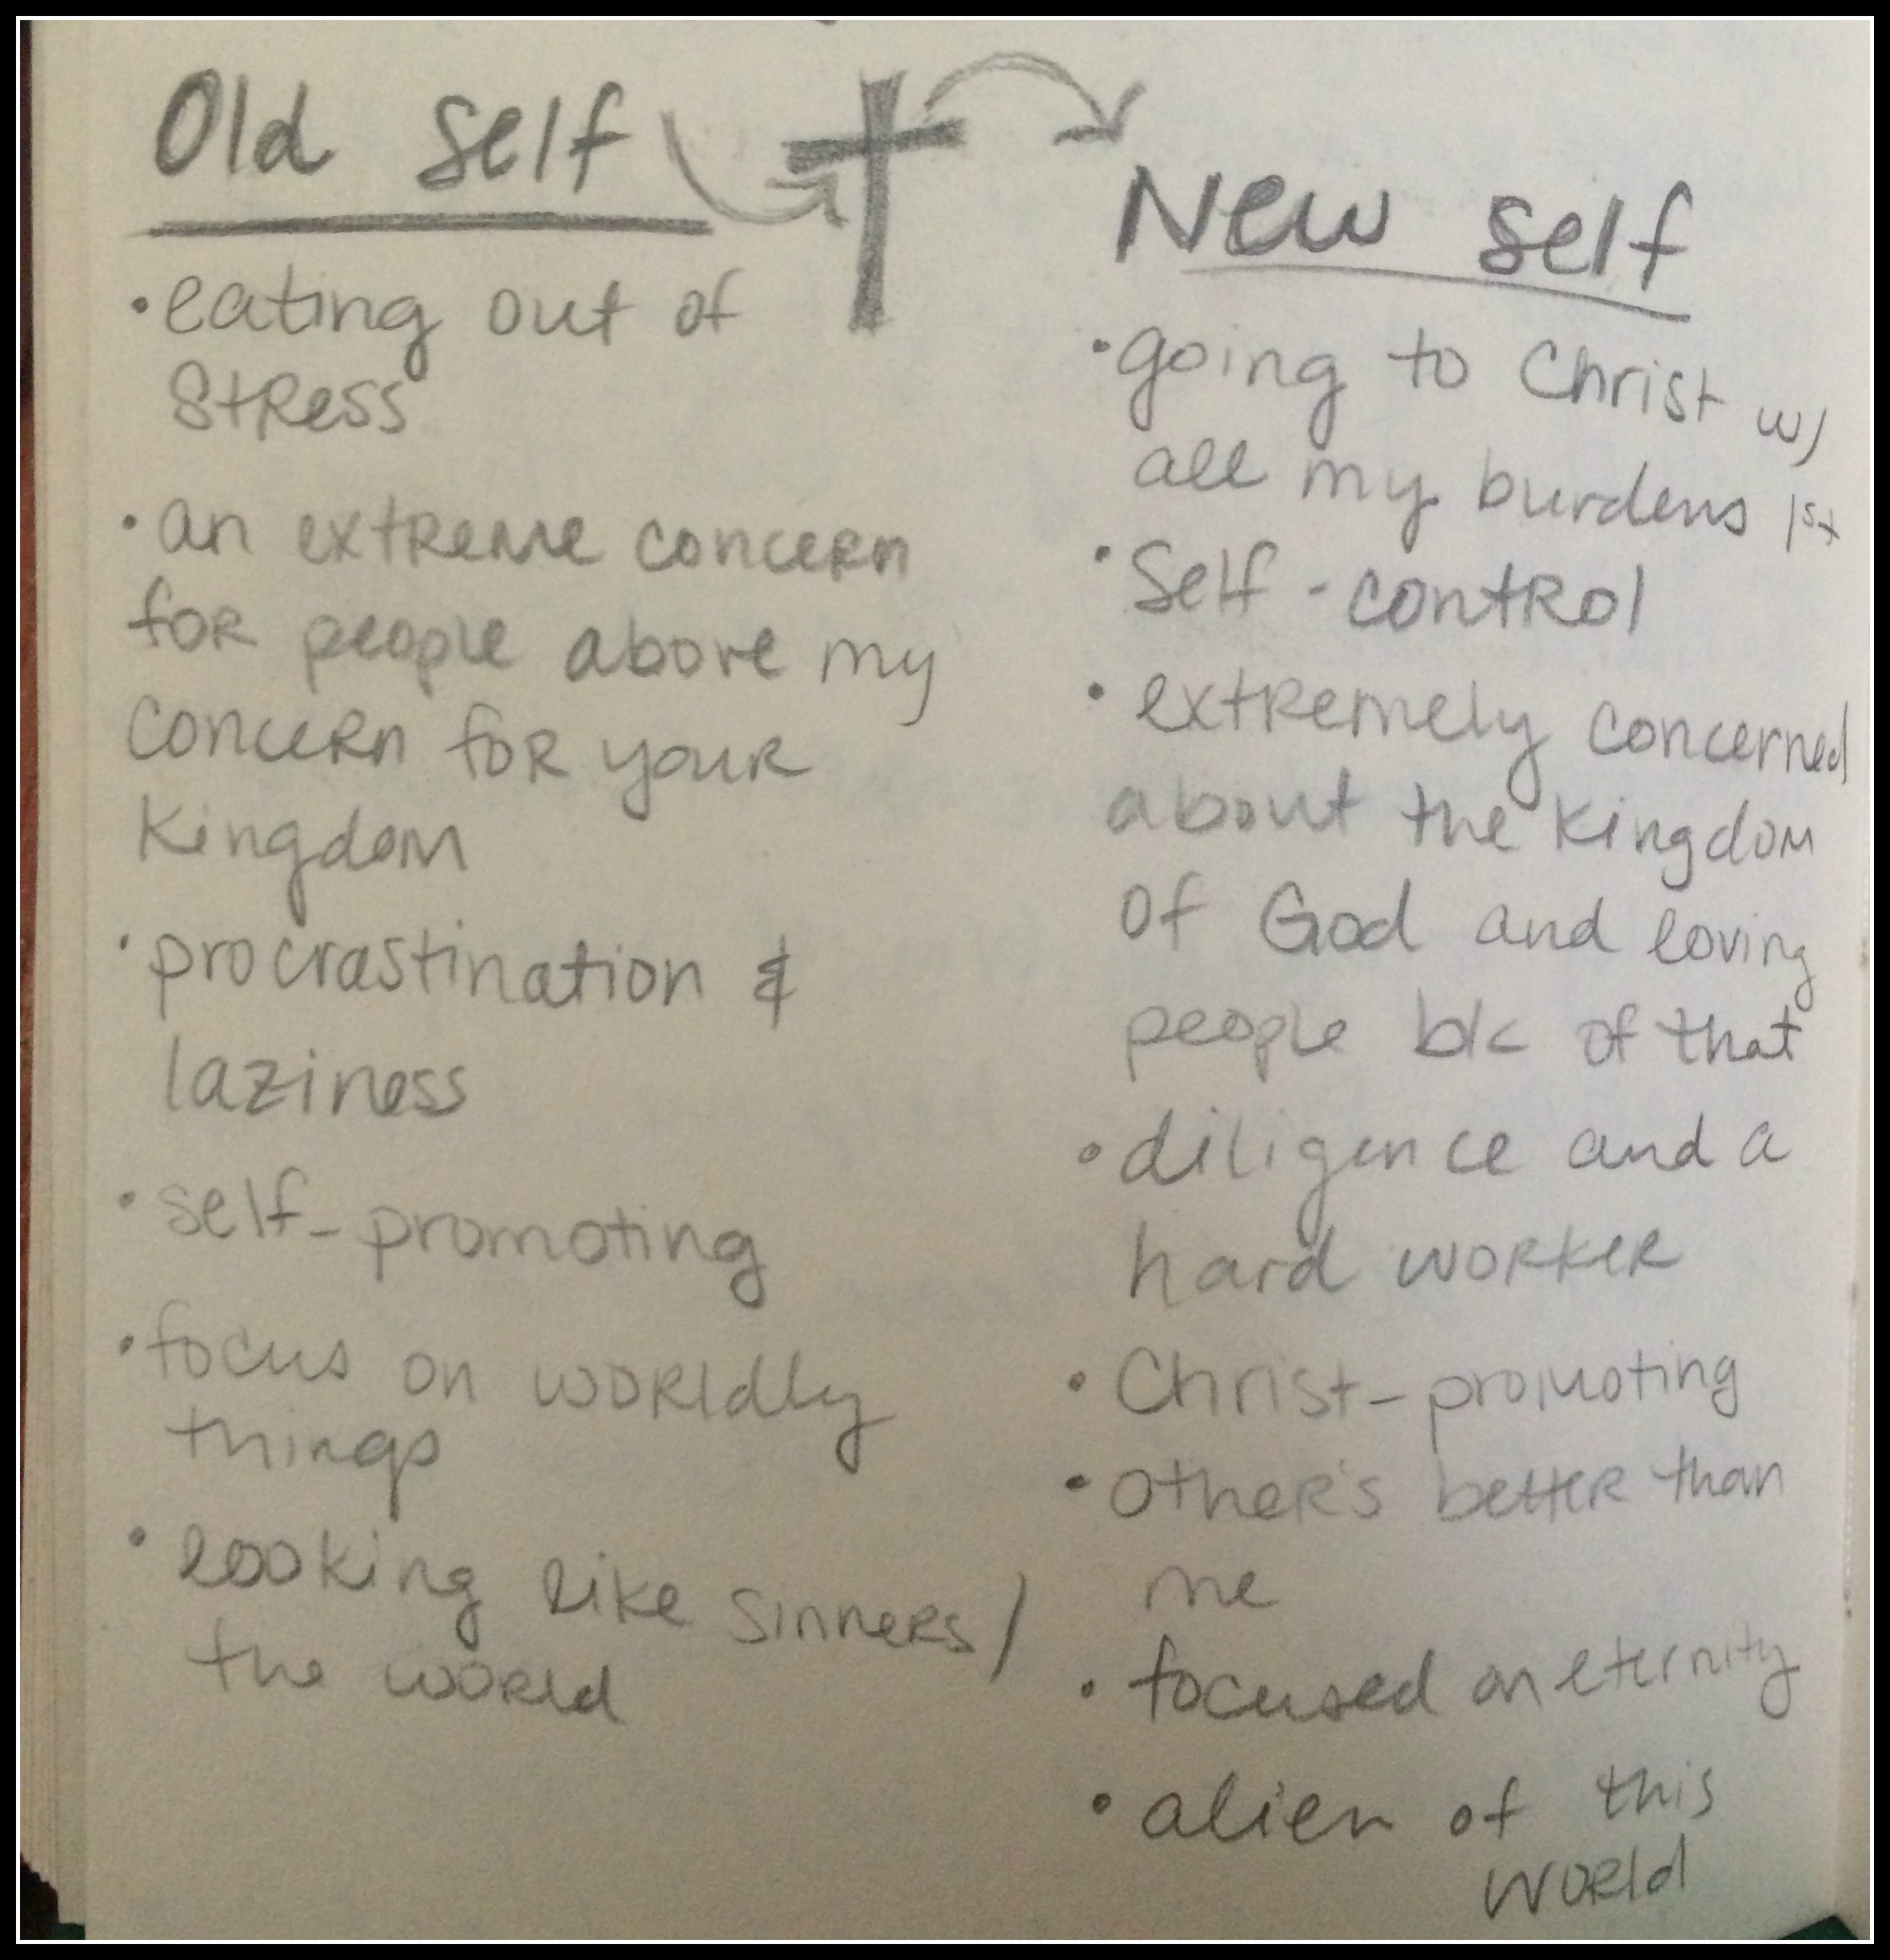 Old self
• eating out of
stress
• an extreme concern
for people above my
concern for your
kingdom
• procrastination &
laziness
• self-promoting
• focus on worldly
things
• looking like sinners/
the world
New self
• going to Christ w/
all my burdens 1st
• Self-control
• extremely concerned
about the kingdom
of God and loving
people b/c of that
• diligence and a
hard worker
• Christ-promoting
• other's better than
me
• focused on eternity
• alien of this
world